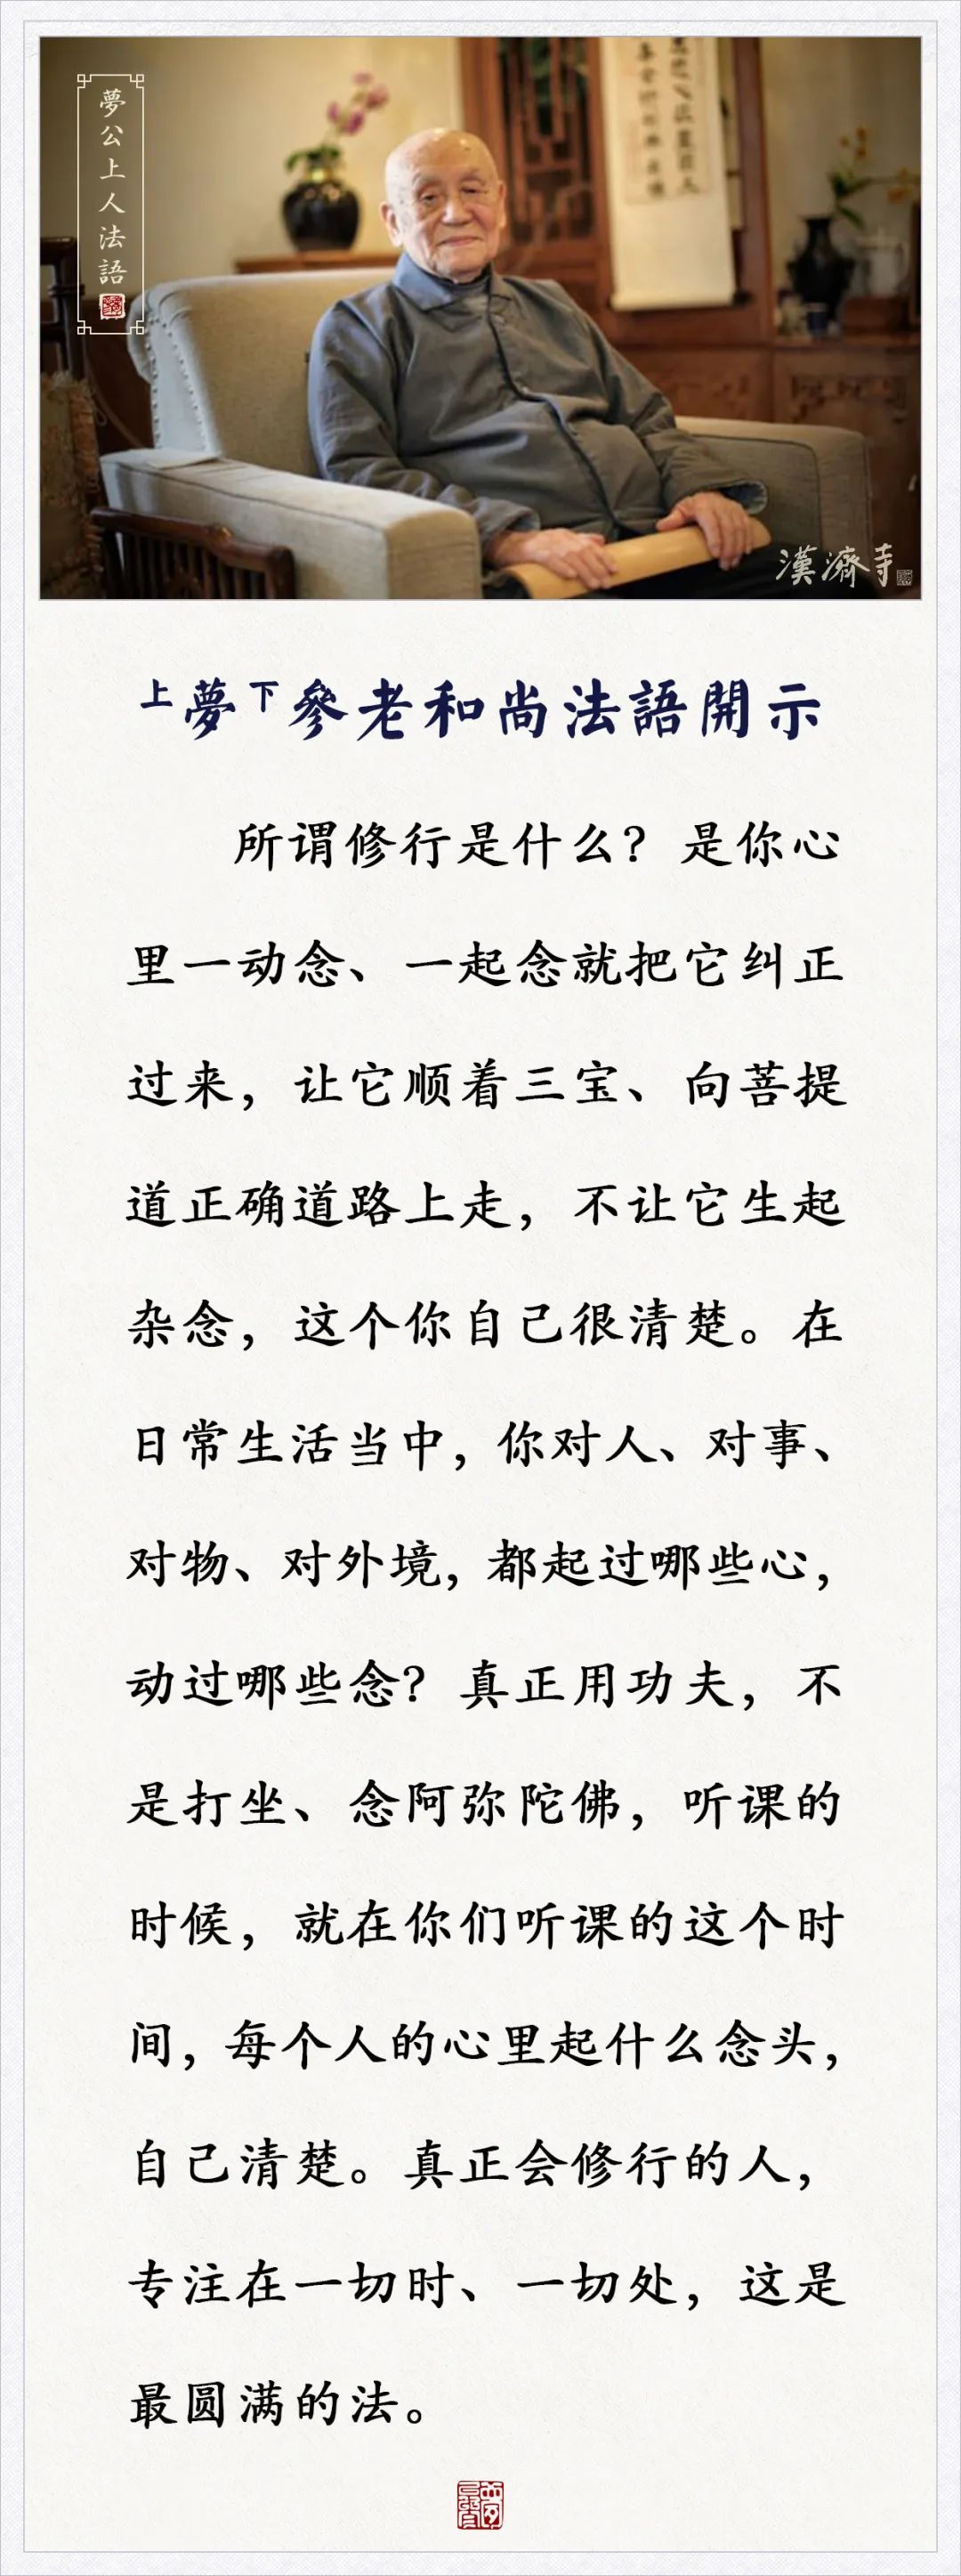 夢公上人法語
漢濟寺
上夢下參老和尚法語開示
所谓修行是什么？是你心
里一动念、一起念就把它纠正
过来，让它顺着三宝、向菩提
道正确道路上走，不让它生起
杂念，这个你自己很清楚。在
日常生活当中，你对人、对事、
对物、对外境，都起过哪些心，
动过哪些念？真正用功夫，不
是打坐、念阿弥陀佛，听课的
时候，就在你们听课的这个时
间，每个人的心里起什么念头，
自己清楚。真正会修行的人，
专注在一切时、一切处，这是
最圆满的法。